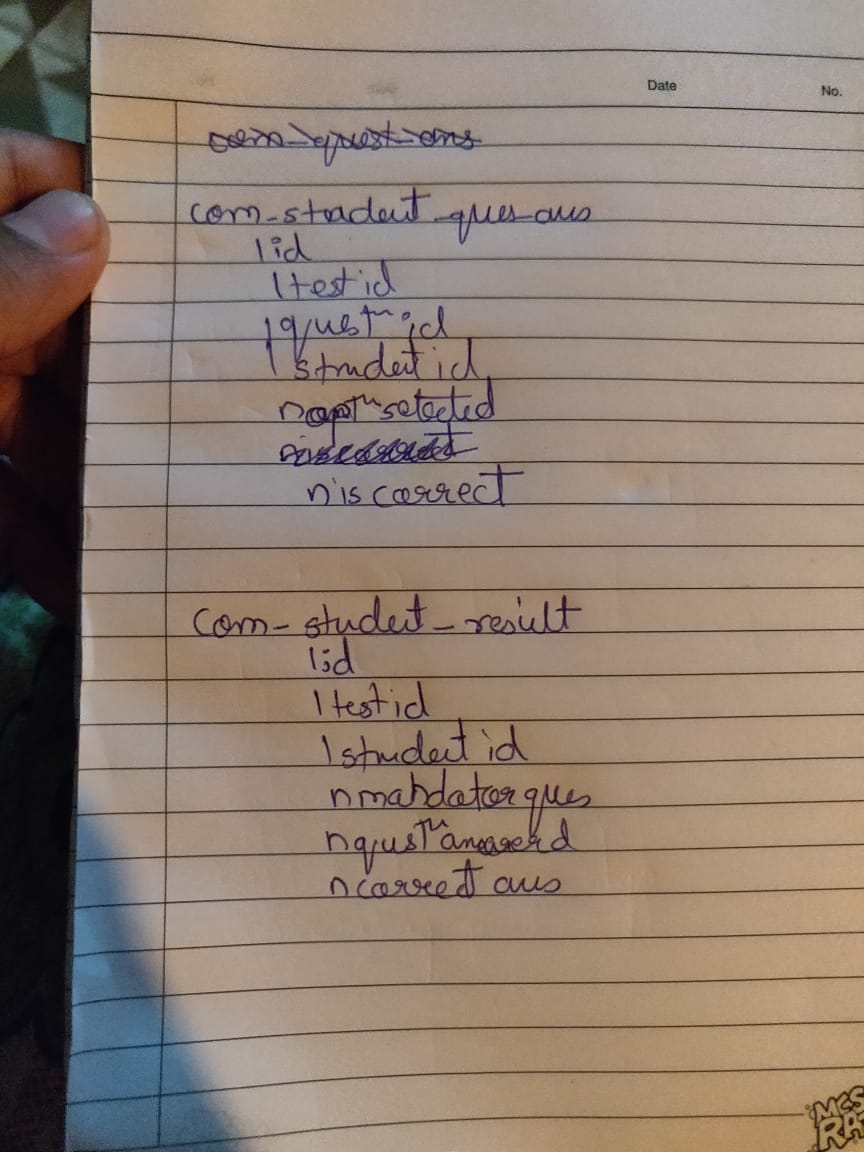 Date
No.
com-questions
com-student-ques-ans
lid
ltestid
lquestn id
lstudent id
noptn selected
niscorrect
com-student-result
lid
ltestid
lstudent id
nmandator ques
nquestn
ncorrect ans
MCS